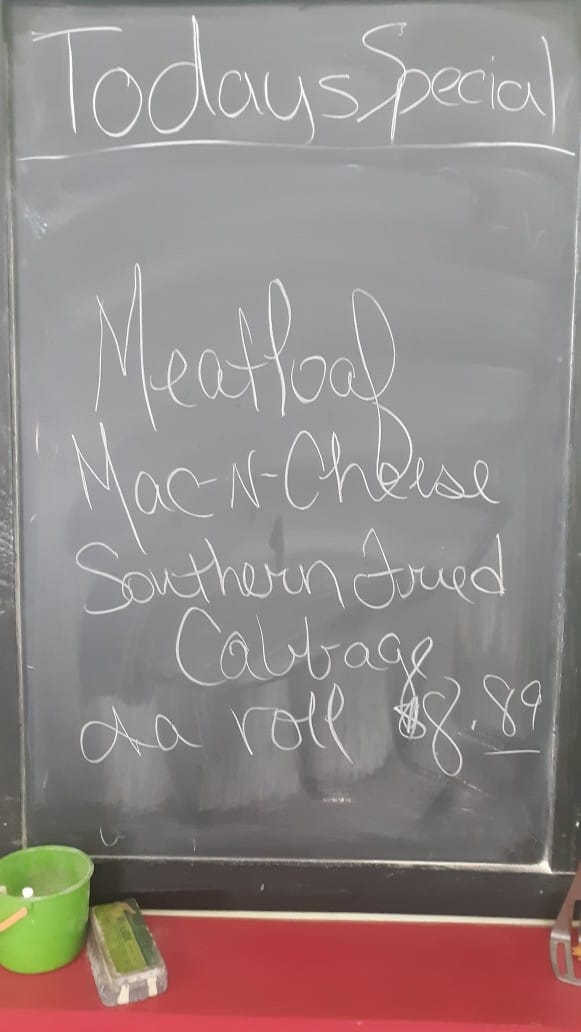 Todays Special
Meatloaf
Mac-N-Cheese
Southern Fried
Cabbage
& a roll $8.89